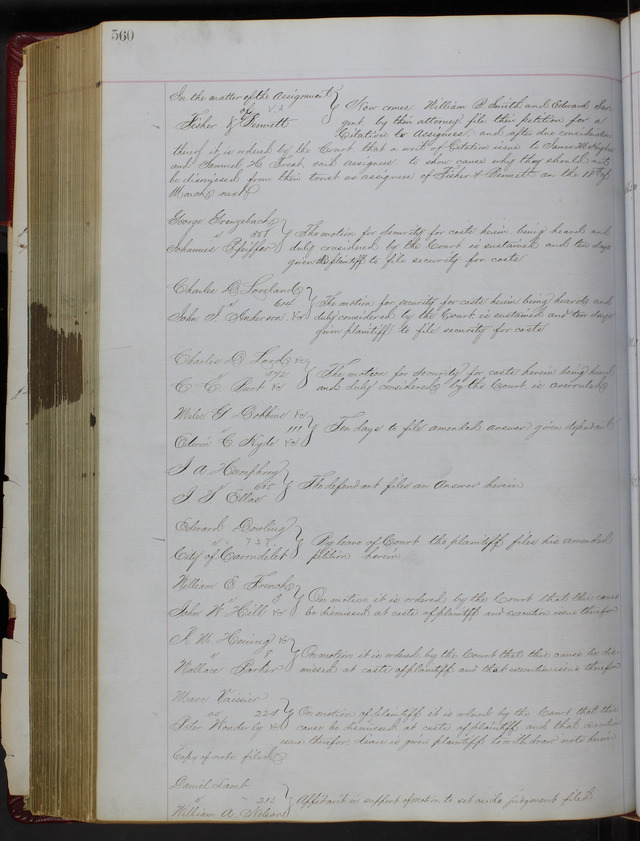 560
In the matter of the Assignment
of
Fisher & Bennett
Now comes William B. Smith and Edward
by their attorney file their petition for a
Citation to Assignees and after due consideration
thereof it is ordered by the Court that a writ of Citation issue to James
and Samuel H. Treat said assignees to show cause why they should not
be dismissed from their trust as assignees of Fisher & Bennett on the
March next
George
vs 558
Johannes Pfeiffer
The motion for security for costs herein being heard and
duly considered by the Court is sustained and ten days
given the plaintiff to file security for costs
Charles D. Loveland
vs 614
John J. Anderson
The motion for security for costs herein being heard and
duly considered by the Court is sustained and ten days
given plaintiff to file security for costs
Charles D.
vs 572
C. C.
The motion for security for costs herein being heard
and duly considered by the Court is overruled
Miles G. Dobbins
vs 111
Edwin C.
Ten days to file amended answer given defendant
J. A. Humphrey
vs 605
J. T.
The defendant files an Answer herein
Edward Dowling
vs 737
City of Carondelet
By leave of Court the plaintiff files his amended
petition herein
William E. French
vs
John W. Hill
On motion it is ordered by the Court that this cause
be dismissed at costs of plaintiff and execution issue therefor
vs 8
Wallace Parker
On motion it is ordered by the Court that this cause be dis-
missed at costs of plaintiff and that execution issue therefor
Marc
vs 224
Peter Wonderly
On motion of plaintiff it is ordered by the Court that this
cause be dismissed at costs of plaintiff and that execution
issue therefor leave is given plaintiff to withdraw note herein
Copy of note filed
Daniel Lamb
vs 213
William A. Nelson
Affidavit in support of motion to set aside judgment filed